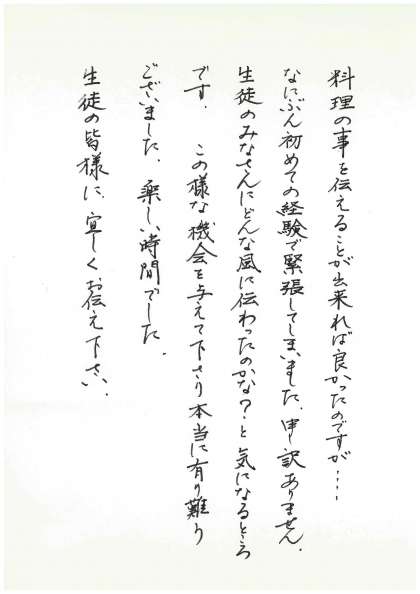 料理の事を伝えることが出来れば良かったのですが....
なにぶん初めての経験で緊張してしまいました。申し訳ありません。
生徒のみなさんにどんな風に伝わったのかな?と気になるところ
です。 この様な機会を与えて下さり本当に有り難う
ございました。楽しい時間でした。
生徒の皆様に、宜しくお伝え下さい。